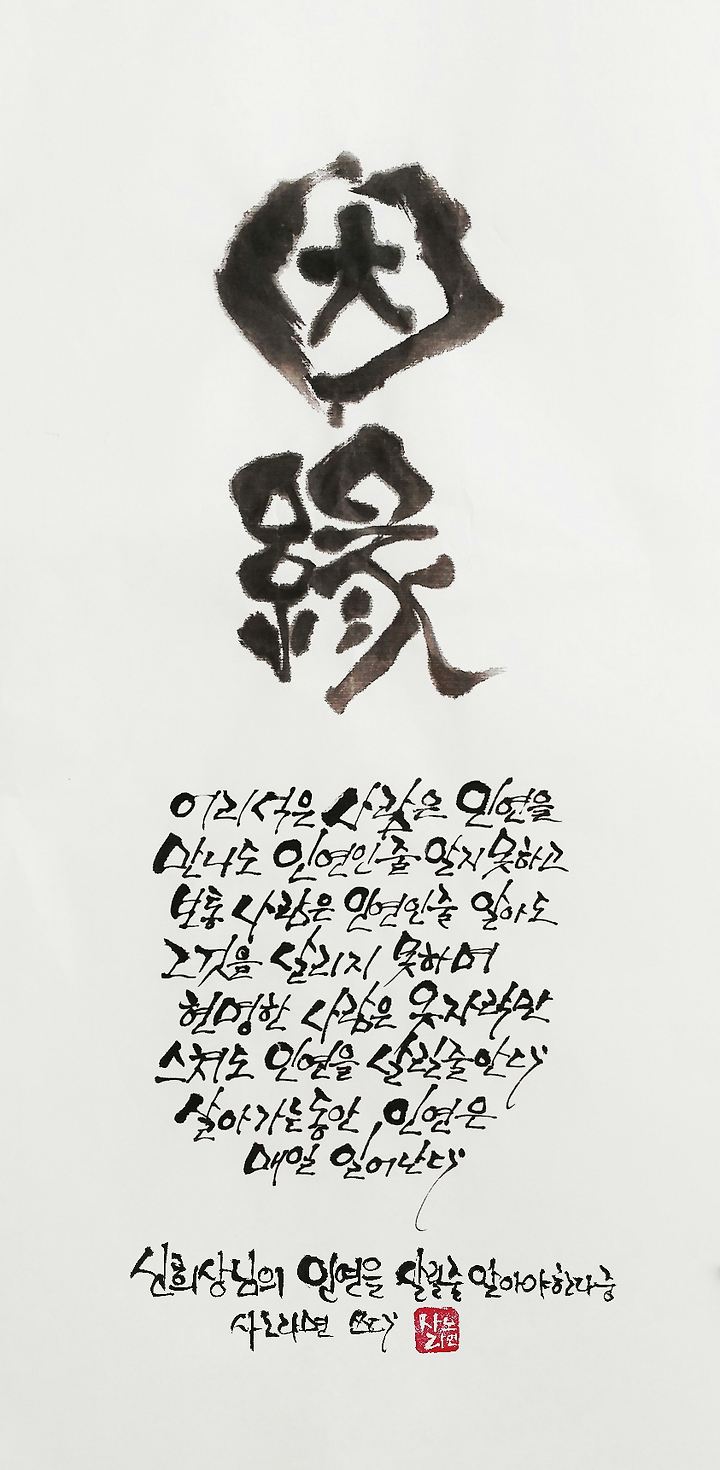 因
緣
어리석은 사람은 인연을
만나도 인연인줄 알지못하고
보통 사람은 인연인줄 알아도
그것을 살리지 못하며
현명한 사람은 옷자락만
스쳐도 인연을 살릴줄안다
살아가는동안, 인연은
매일 일어난다
신희상님의 인연을 살릴줄알아야한다중
사노라면 쓰다